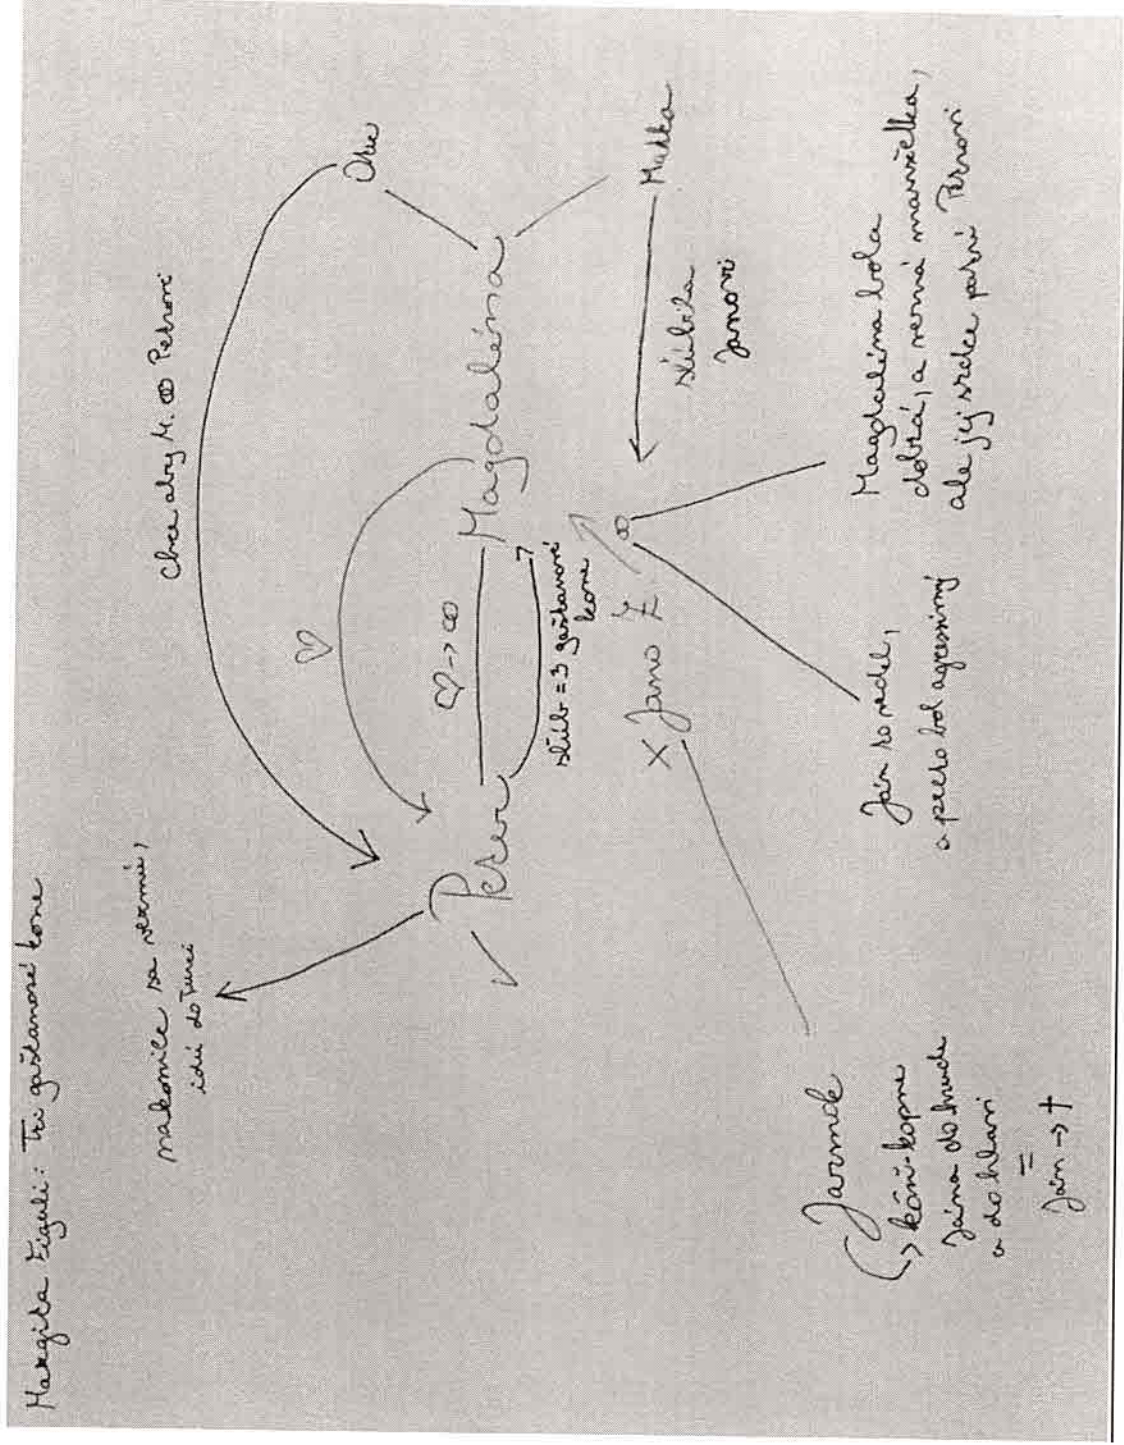 Margita Figuli: Tri gaštanové kone
nakoniec sa vezmú,
idú do Turci
Chce aby M. ⚭ Petrovi
Otec
Matka
♡
Peter
♡ -> ⚭
Magdaléna
sľub = 3 gaštanové
kone
sľúbila
Janovi
x Jano Ž
⚭
Jarmok
↳ kôň - kopne
Jána do hrude
a do hlavi
=
Ján -> †
Ján to vedel,
a preto bol agresívny
Magdaléna bola
dobrá, a verná manželka,
ale jej srdce patrí Petrovi